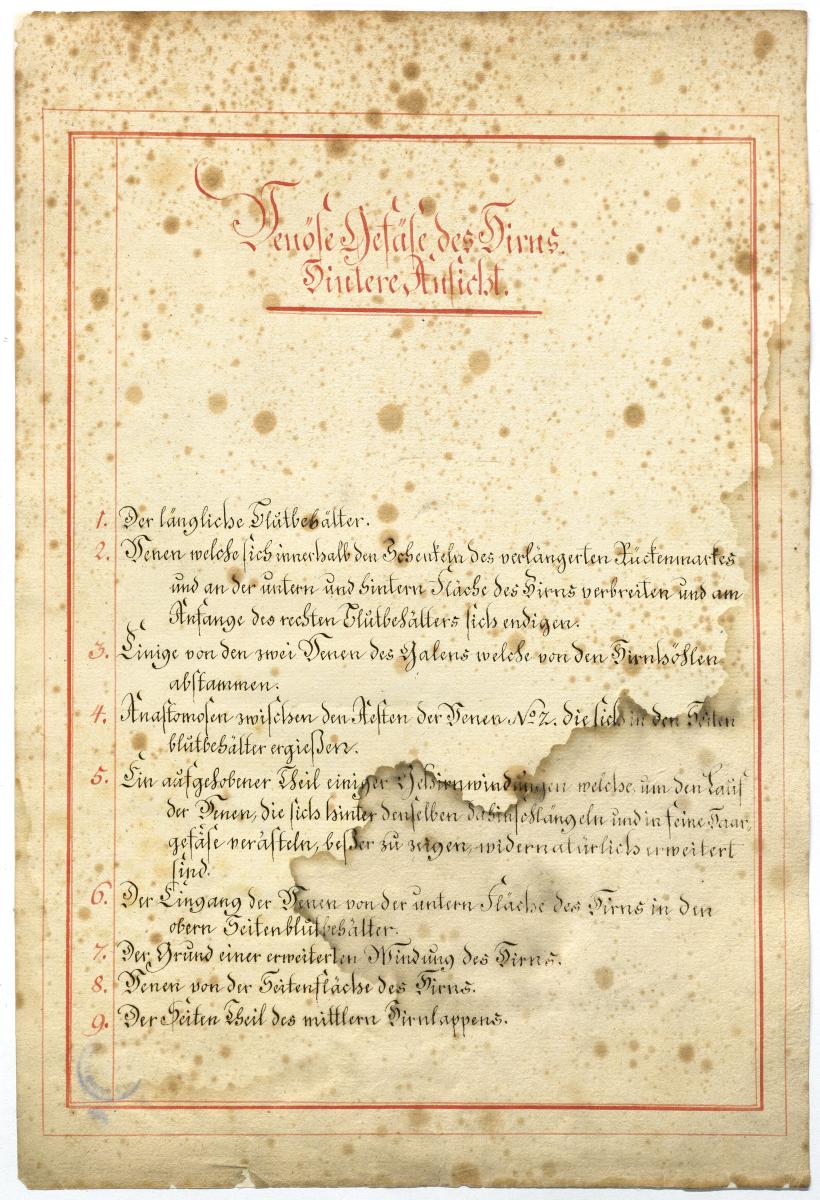 Venöse Gefäse des Hirns.
Hintere Ansicht.
1. Der längliche Blutbehälter.
2. Venen welche sich innerhalb den Schenkeln des verlängerten Rückenmarkes
und an der untern und hintern Fläche des Hirns verbreiten und am
Anfange des rechten Blutbehälters sich endigen.
3. Einige von den zwei Venen des Galens welche von den Hirnhöhlen
abstammen.
4. Anastomosen zwischen den Aesten der Venen No 2. die sich in den Seiten
blutbehälter ergießen.
5. Ein aufgehobener Theil einiger Gehirnwindungen welche, um den Lauf
der Venen, die sich hinter denselben dahinschlängeln und in feine Haar,
gefäse verästeln, beßer zu zeigen, widernatürlich erweitert
sind.
6. Der Eingang der Venen von der untern Fläche des Hirns in den
obern Seitenblutbehälter.
7. Der Grund einer erweiterten Windung des Hirns.
8. Venen von der Seitenfläche des Hirns.
9. Der Seiten Theil des mittlern Hirnlappens.